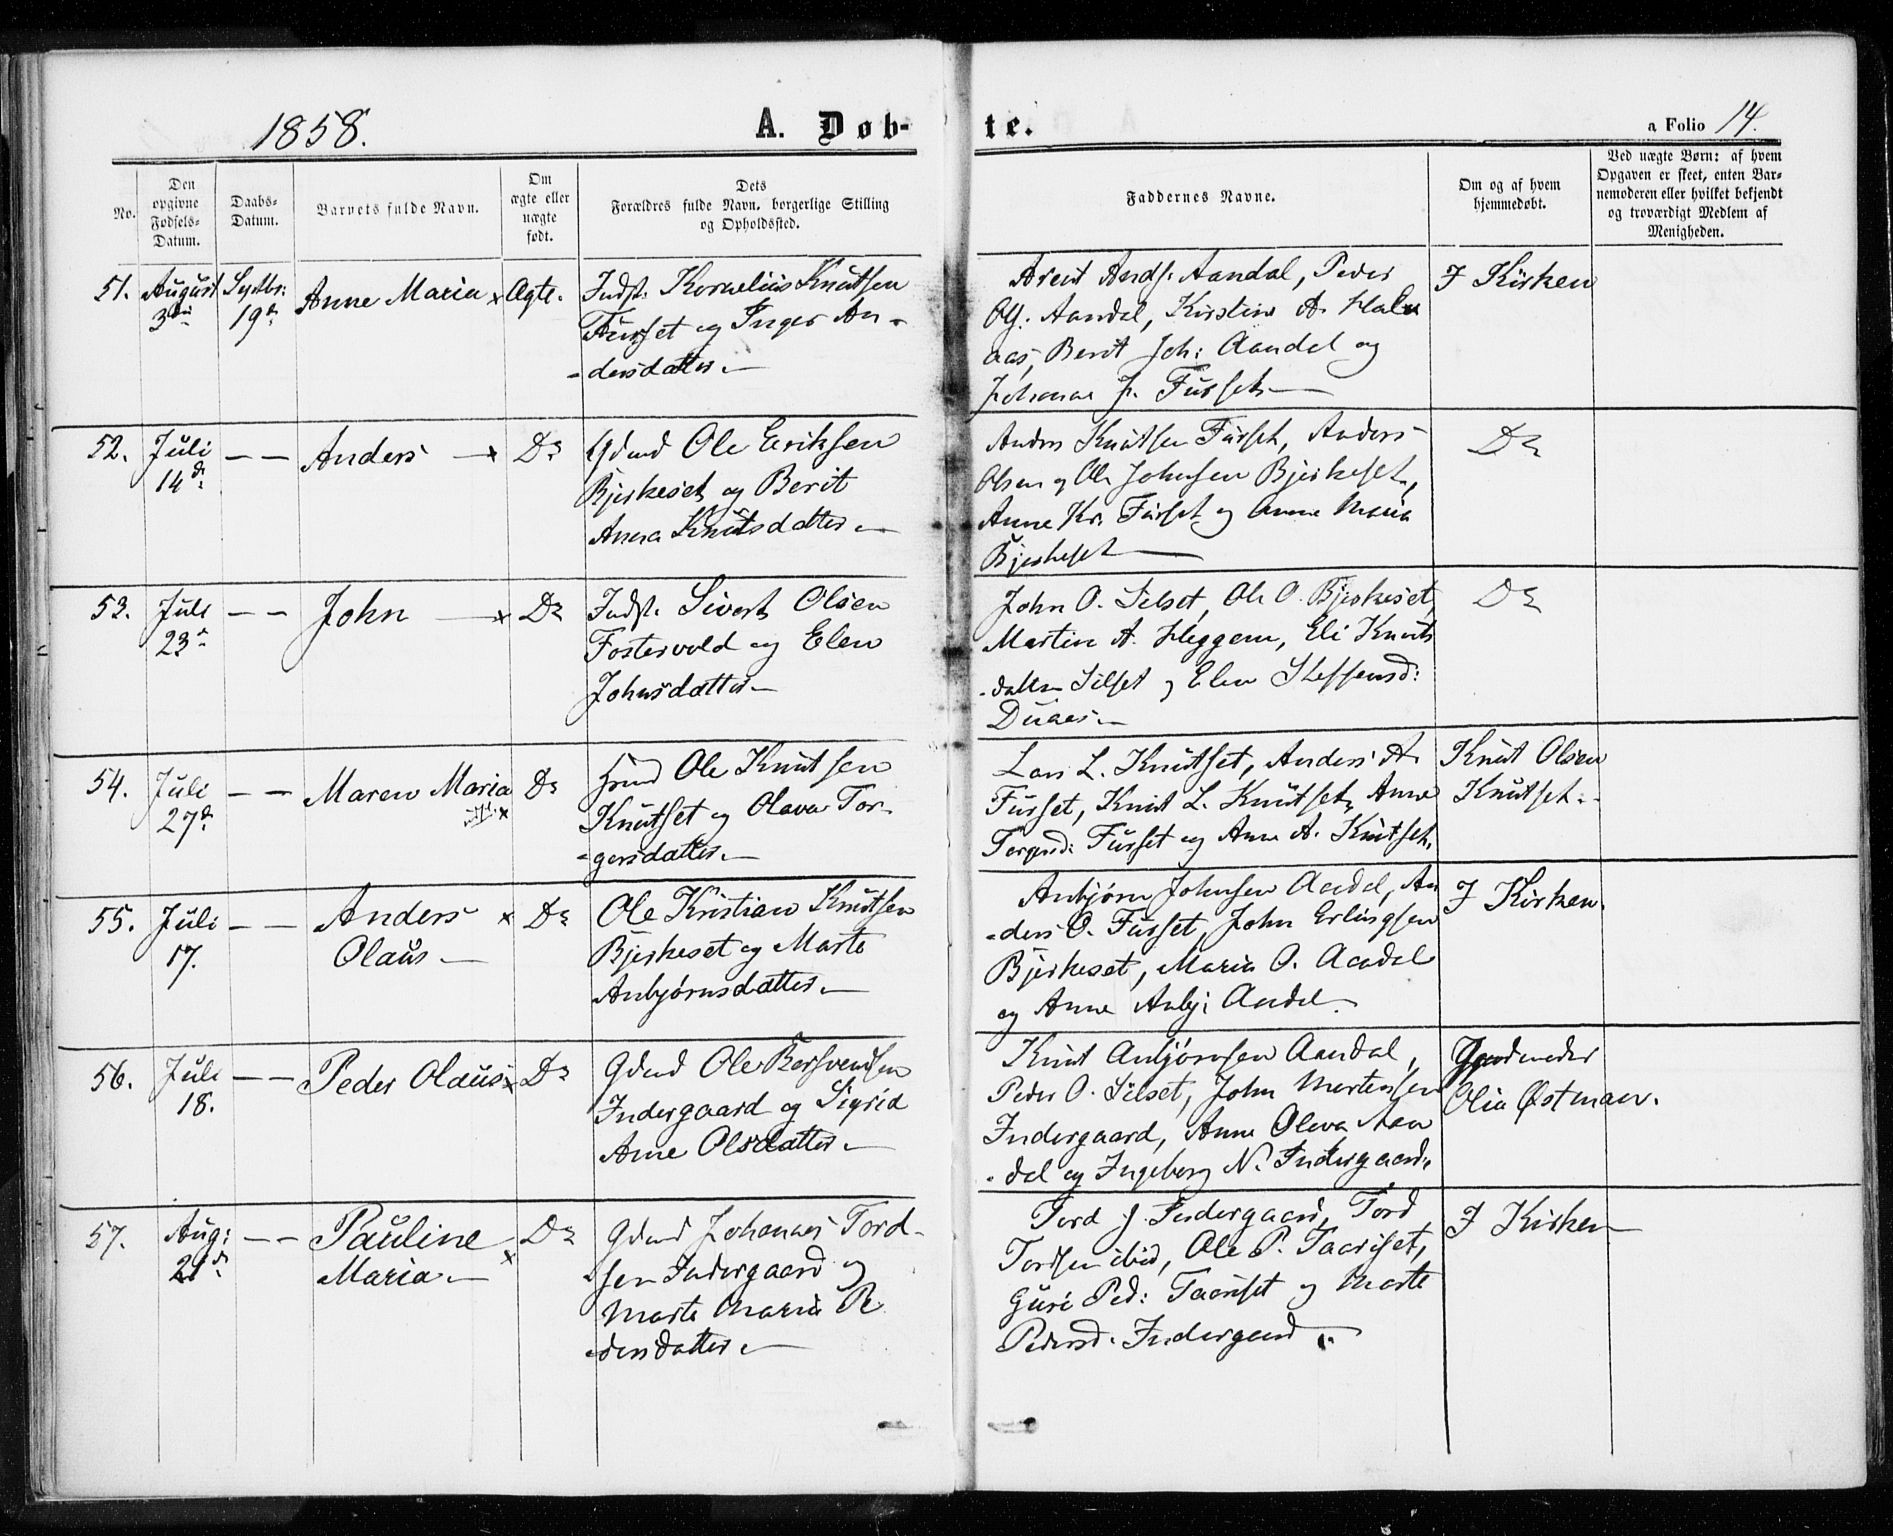 1858.
A. Døb-
te.
a Folio 14.
No.
Den
opgivne
Fødsels-
Datum.
Daabs-
Datum.
Barnets fulde Navn.
Om
ægte eller
uægte
født.
Dets
Forældres fulde Navn, borgerlige Stilling
og Opholdssted.
Faddernes Navne.
Om og af hvem
hjemmedøbt.
Ved uægte Børn: af hvem
Opgaven er skeet, enten Bar-
nemoderen eller hvilket bekjendt
og troværdigt Medlem af
Menigheden.
51.
August
3die
Septbr:
19de
Anne Maria x
Ægte.
Indst. Kornelius Knutsen
Furset og Inger An-
-dersdatter.
Arent Ands: Aandal, Peder
Aandal, Kirstine A. Hals
aas, Berit Joh: Aandal og
Johanne J. Furset
I Kirken
52.
Juli
14de
— —
Anders — x
Do
Gdmd Ole Eriksen
Bjerkeset og Berit
Anna Knutsdatter.
Anders Knutsen Furset, Anders
Olsen og Ole Johnsen Bjerkeset,
Anne Kr. Furset og Anne Maria
Bjerkeset
Do
53.
Juli
23de
— —
John — x
Do
Indst. Sivert Olsen
Fostervold og Elen
Johnsdatter.
John O. Silset, Ole O. Bjerkeset,
Martin A. Heggem, Eli Knuts
-datter Silset og Elen Steffensd:
Do
54.
Juli
27de
— —
Maren Maria
x
Do
Ole Knutsen
Knutset og Olava Tor-
-gersdatter.
Lars L. Knutset, Anders A.
Furset, Knut L. Knutset, Anne
Torgersd: Furset og Anne A. Knutset.
Knut Olsen
Knutset.
55.
Juli
17.
— —
Anders x
Olaus —
Do
Ole Kristian Knutsen
Bjerkeset og Marte
Anbjørnsdatter.
Anbjørn Johnsen Aandal, An
-ders O. Furset, John Erlingsen
Bjerkeset, Maria O. Aandal
og Anne Anbj: Aandal.
I Kirken.
56.
Juli
18.
— —
Peder Olaus x
Do
Gdmd Ole Bersvendsen
Indergaard og Sigrid
Anne Olsdatter.
Knut Anbjørnsen Aandal,
Peder O. Silset, John Mortensen
Indergaard, Anne Oleva Aan
-dal og Ingeborg N. Indergaard.
Jordmoder
Olia Østman.
57.
Aug:
21de
— —
Pauline
x
Maria —
Do
Gdmd Johannes Tord-
-sen Indergaard og
Marte Maria Pe
-dersdatter.
Tord J. Indergaard, Tord
Tordsen ibid, Ole P. Taarset,
Guri Ped: Taarset og Marte
Pedersd. Indergaard.
I Kirken